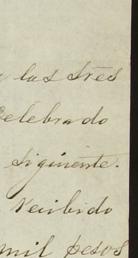 las tres
celebrado
siguiente.
recibido
mil pesos